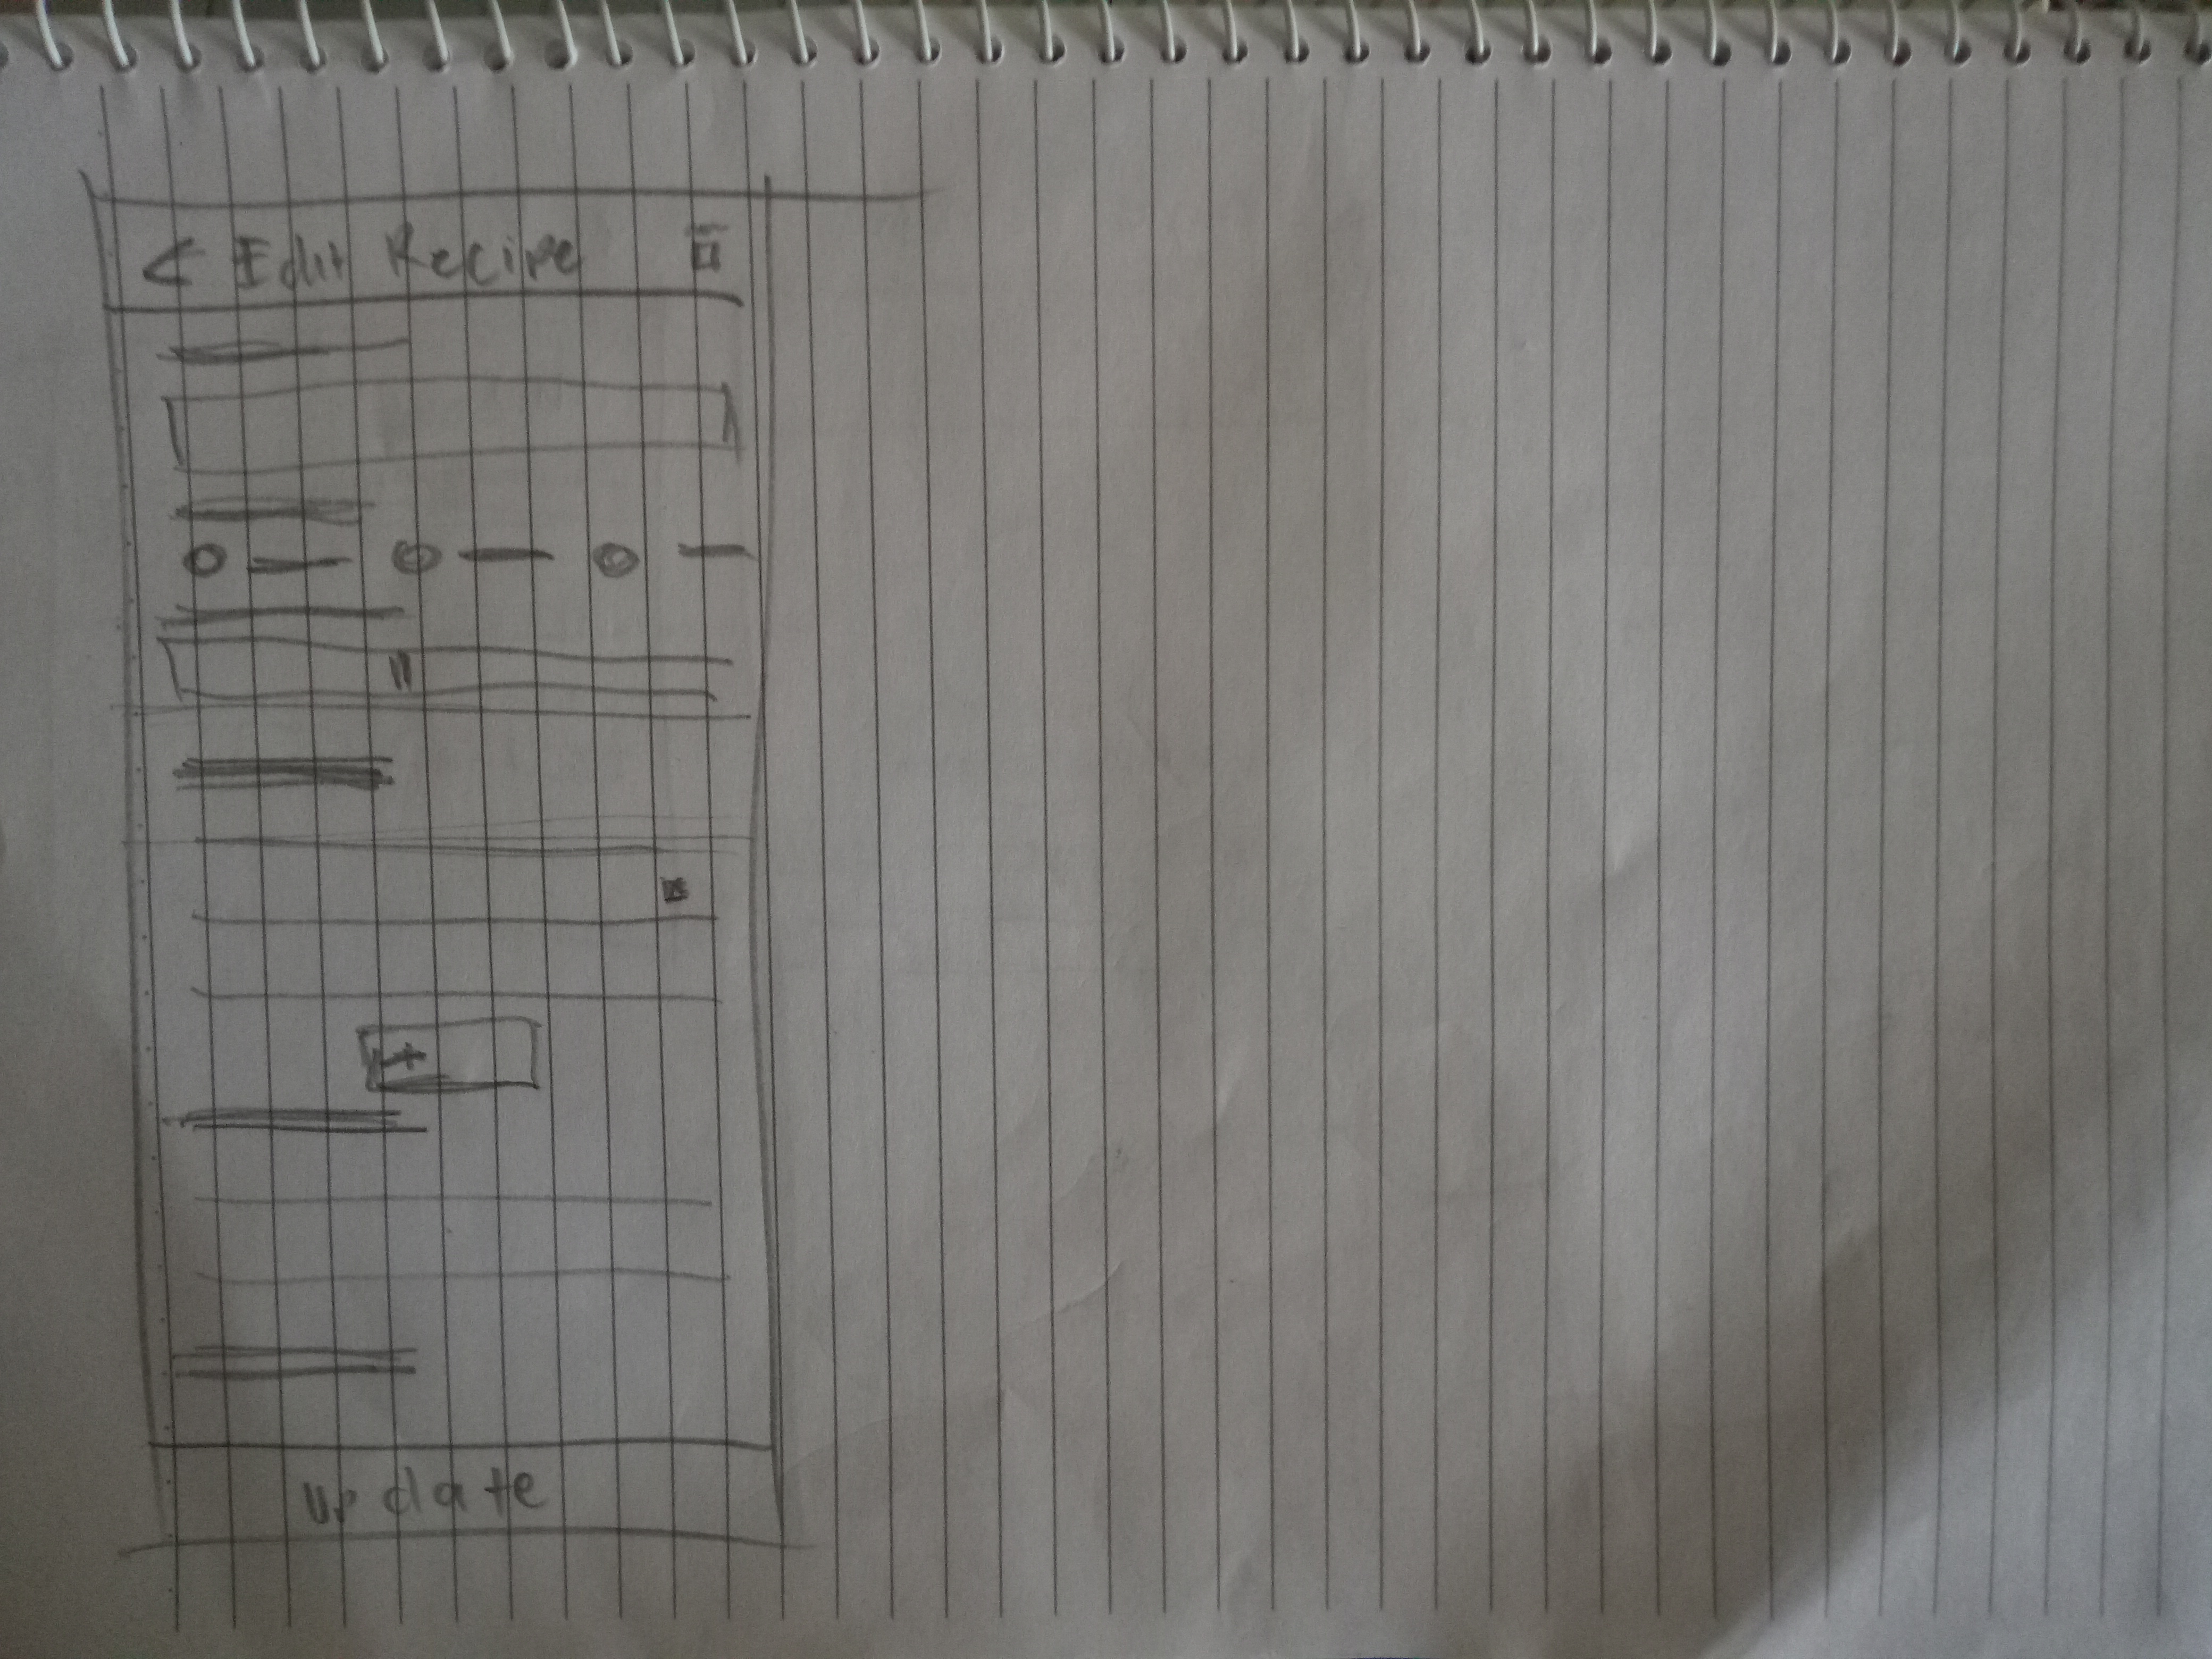 < Edit Recipe
+
update